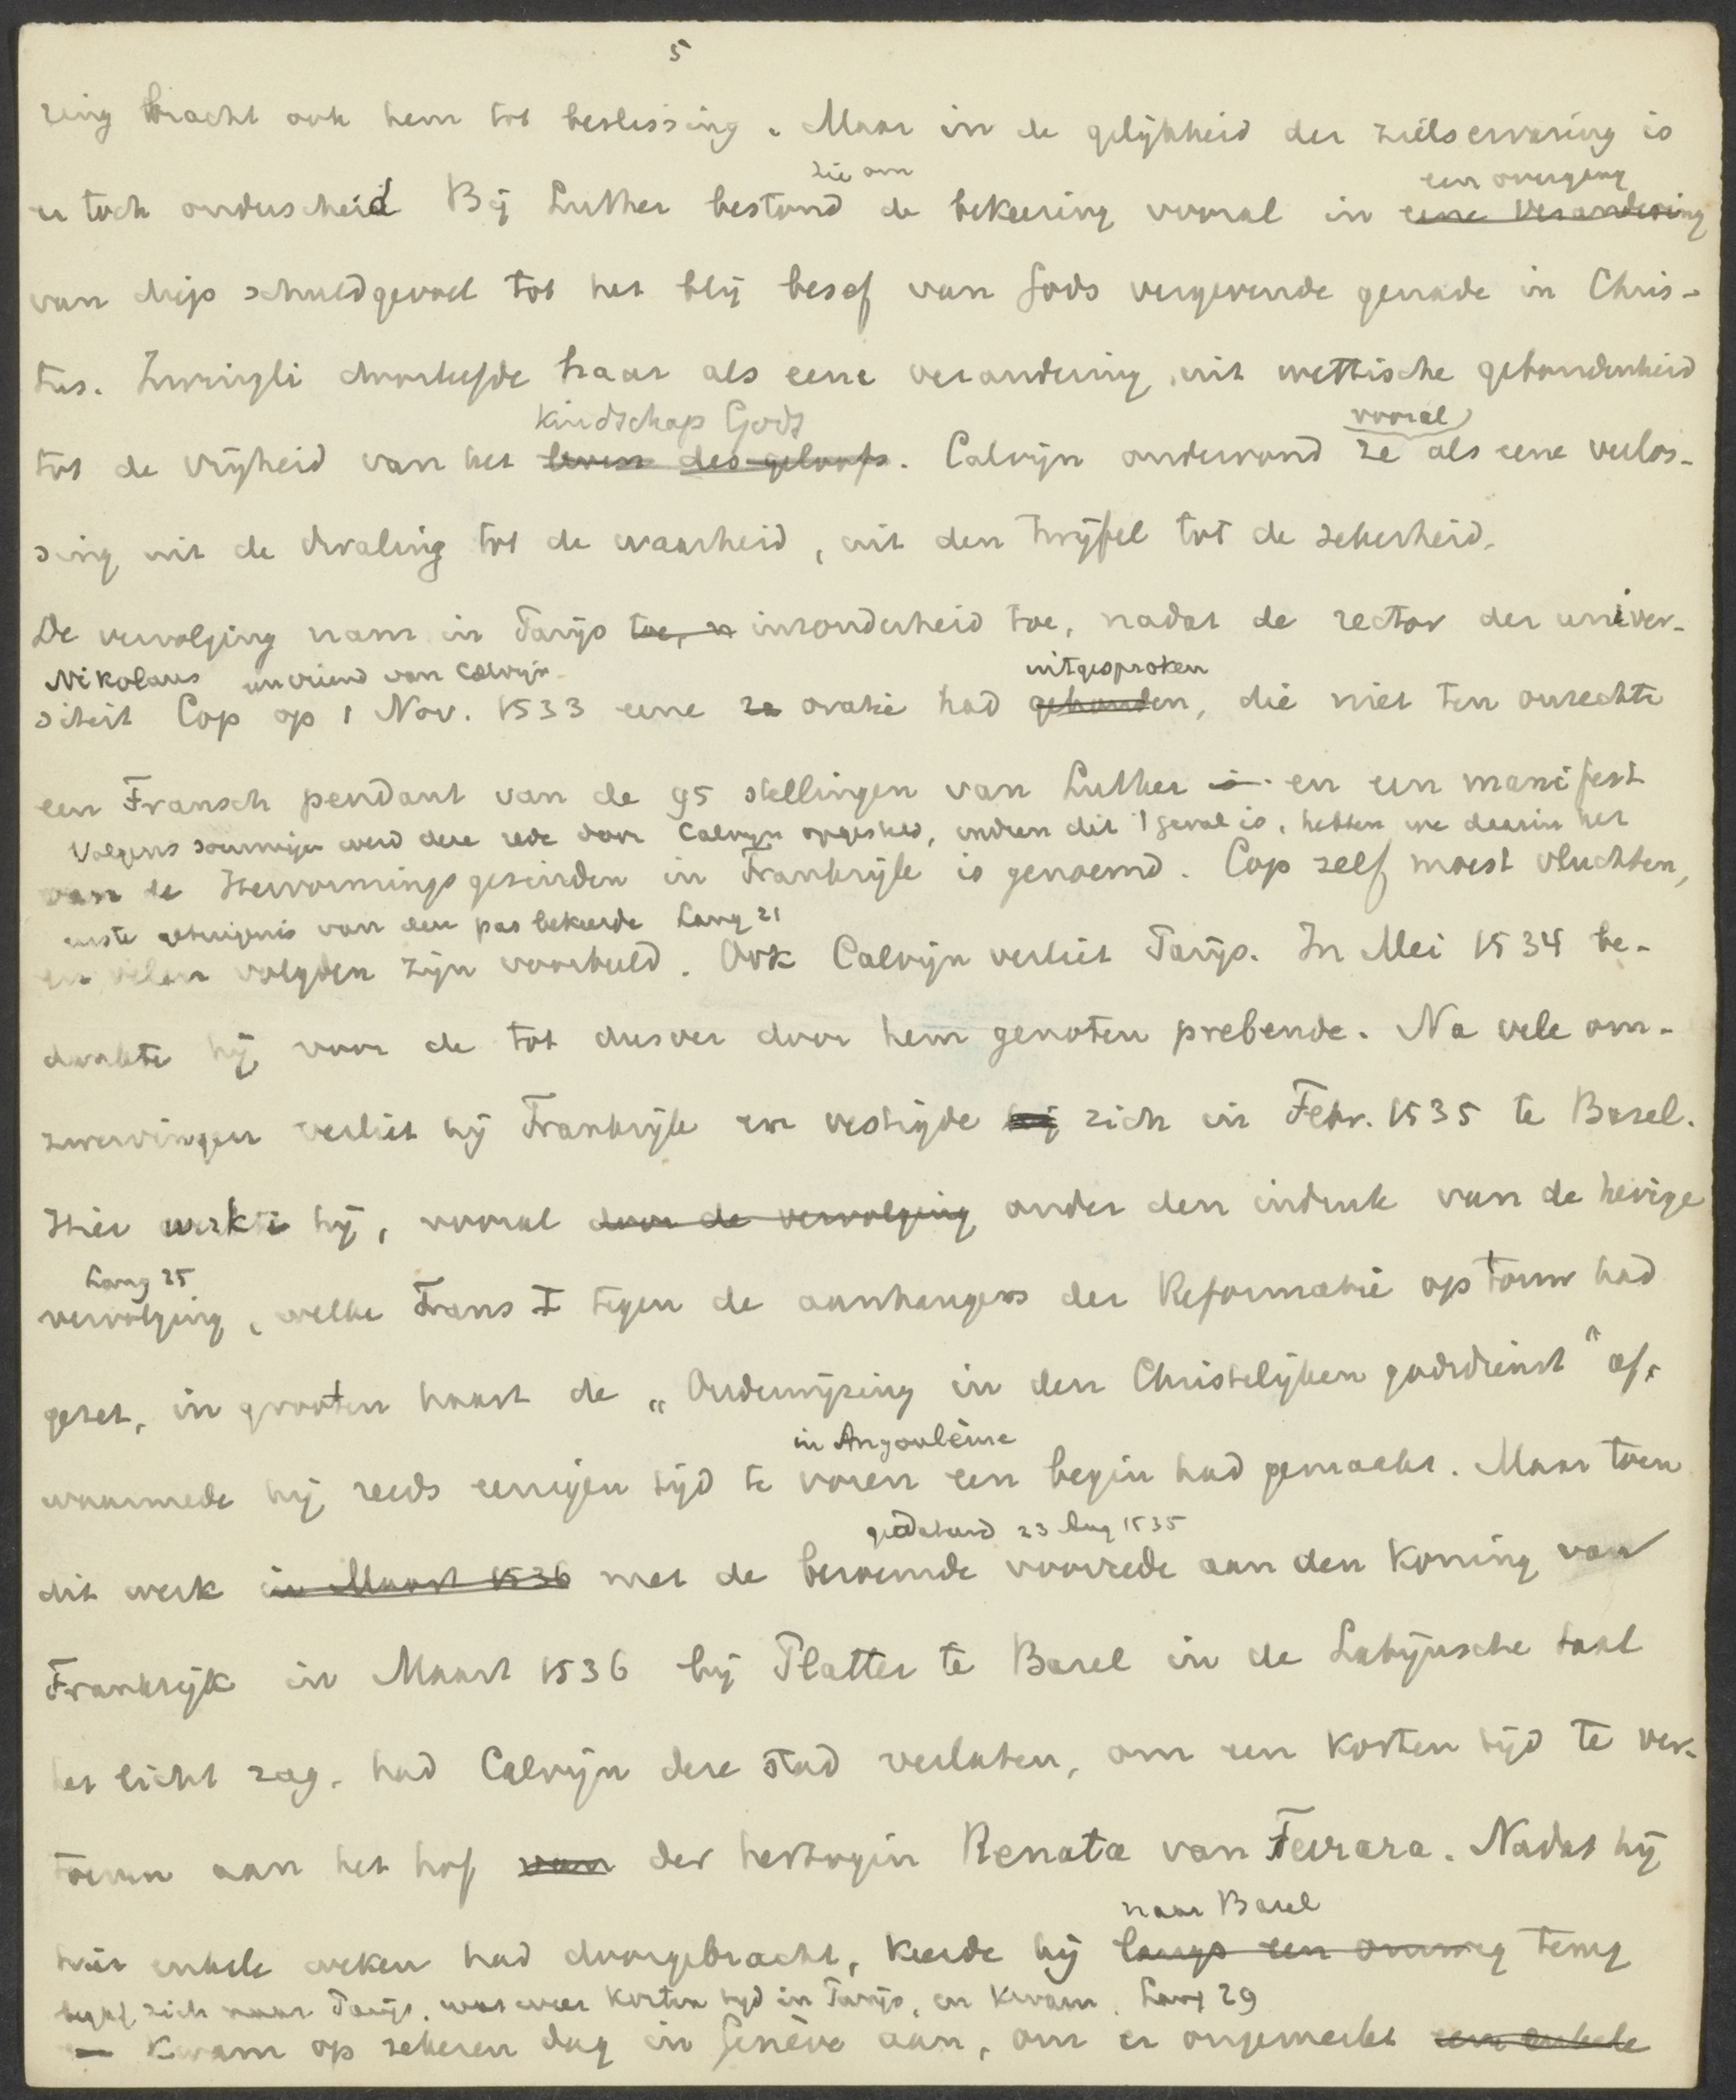 5
ring bracht ook hem tot beslissing. Maar in de gelijkheid der zielservaring is
zie om
een overgang
er toch onderscheid Bij Luther bestond de bekeering vooral in eene verandering
van diep schuldgevoel tot het blij besef van Gods vergevende genade in Chris-
tus. Zwingli doorleefde haar als eene verandering uit wettische gebondenheid
kindschap Gods
vooral
tot de vrijheid van het leven des geloofs. Calvijn ondervond ze als eene verlos-
sing uit de dwaling tot de waarheid, uit den twijfel tot de zekerheid.
De vervolging nam in Parijs toe, n inzonderheid toe, nadat de rector der univer-
Nikolaus een vriend van Calvijn
uitgesproken
siteit Cop op 1 Nov. 1533 eene ra oratie had gehouden, die niet ten onrechte
een Fransch pendant van de 95 stellingen van Luther is en een manifest
Volgens sommigen werd deze rede door Calvijn opgesteld, indien dit 't geval is, hebben we daarin het
van de Hervormingsgezinden in Frankrijk is genoemd. Cop zelf moest vluchten,
eerste getuigenis van den pas bekeerde Lang 21
en velen volgden zijn voorbeeld. Ook Calvijn verliet Parijs. In Mei 1534 be-
dankte hij voor de tot dusver door hem genoten prebende. Na vele om-
zwervingen verliet hij Frankrijk en vestigde hij zich in Febr. 1535 te Bazel.
Hier werkte hij, vooral door de vervolging onder den indruk van de hevige
Lang 25
vervolging, welke Frans I tegen de aanhangers der Reformatie op touw had
gezet, in grooten haast de „Onderwijzing in den Christelijken godsdienst" af,
in Angoulème
waarmede hij reeds eenigen tijd te voren een begin had gemaakt. Maar toen
gedateerd 23 Aug 1535
dit werk in Maart 1536 met de beroemde voorrede aan den Koning van
Frankrijk in Maart 1536 bij Platter te Bazel in de Latijnsche taal
het licht zag, had Calvijn deze stad verlaten, om een korten tijd te ver-
toeven aan het hof van der hertogin Renata van Ferrara. Nadat hij
naar Bazel
hier enkele weken had doorgebracht, keerde hij langs een omweg terug
begaf zich naar Parijs, was weer korten tijd in Parijs, en kwam, Lang 29
kwam op zekeren dag in Genève aan, om er ongemerkt een enkele